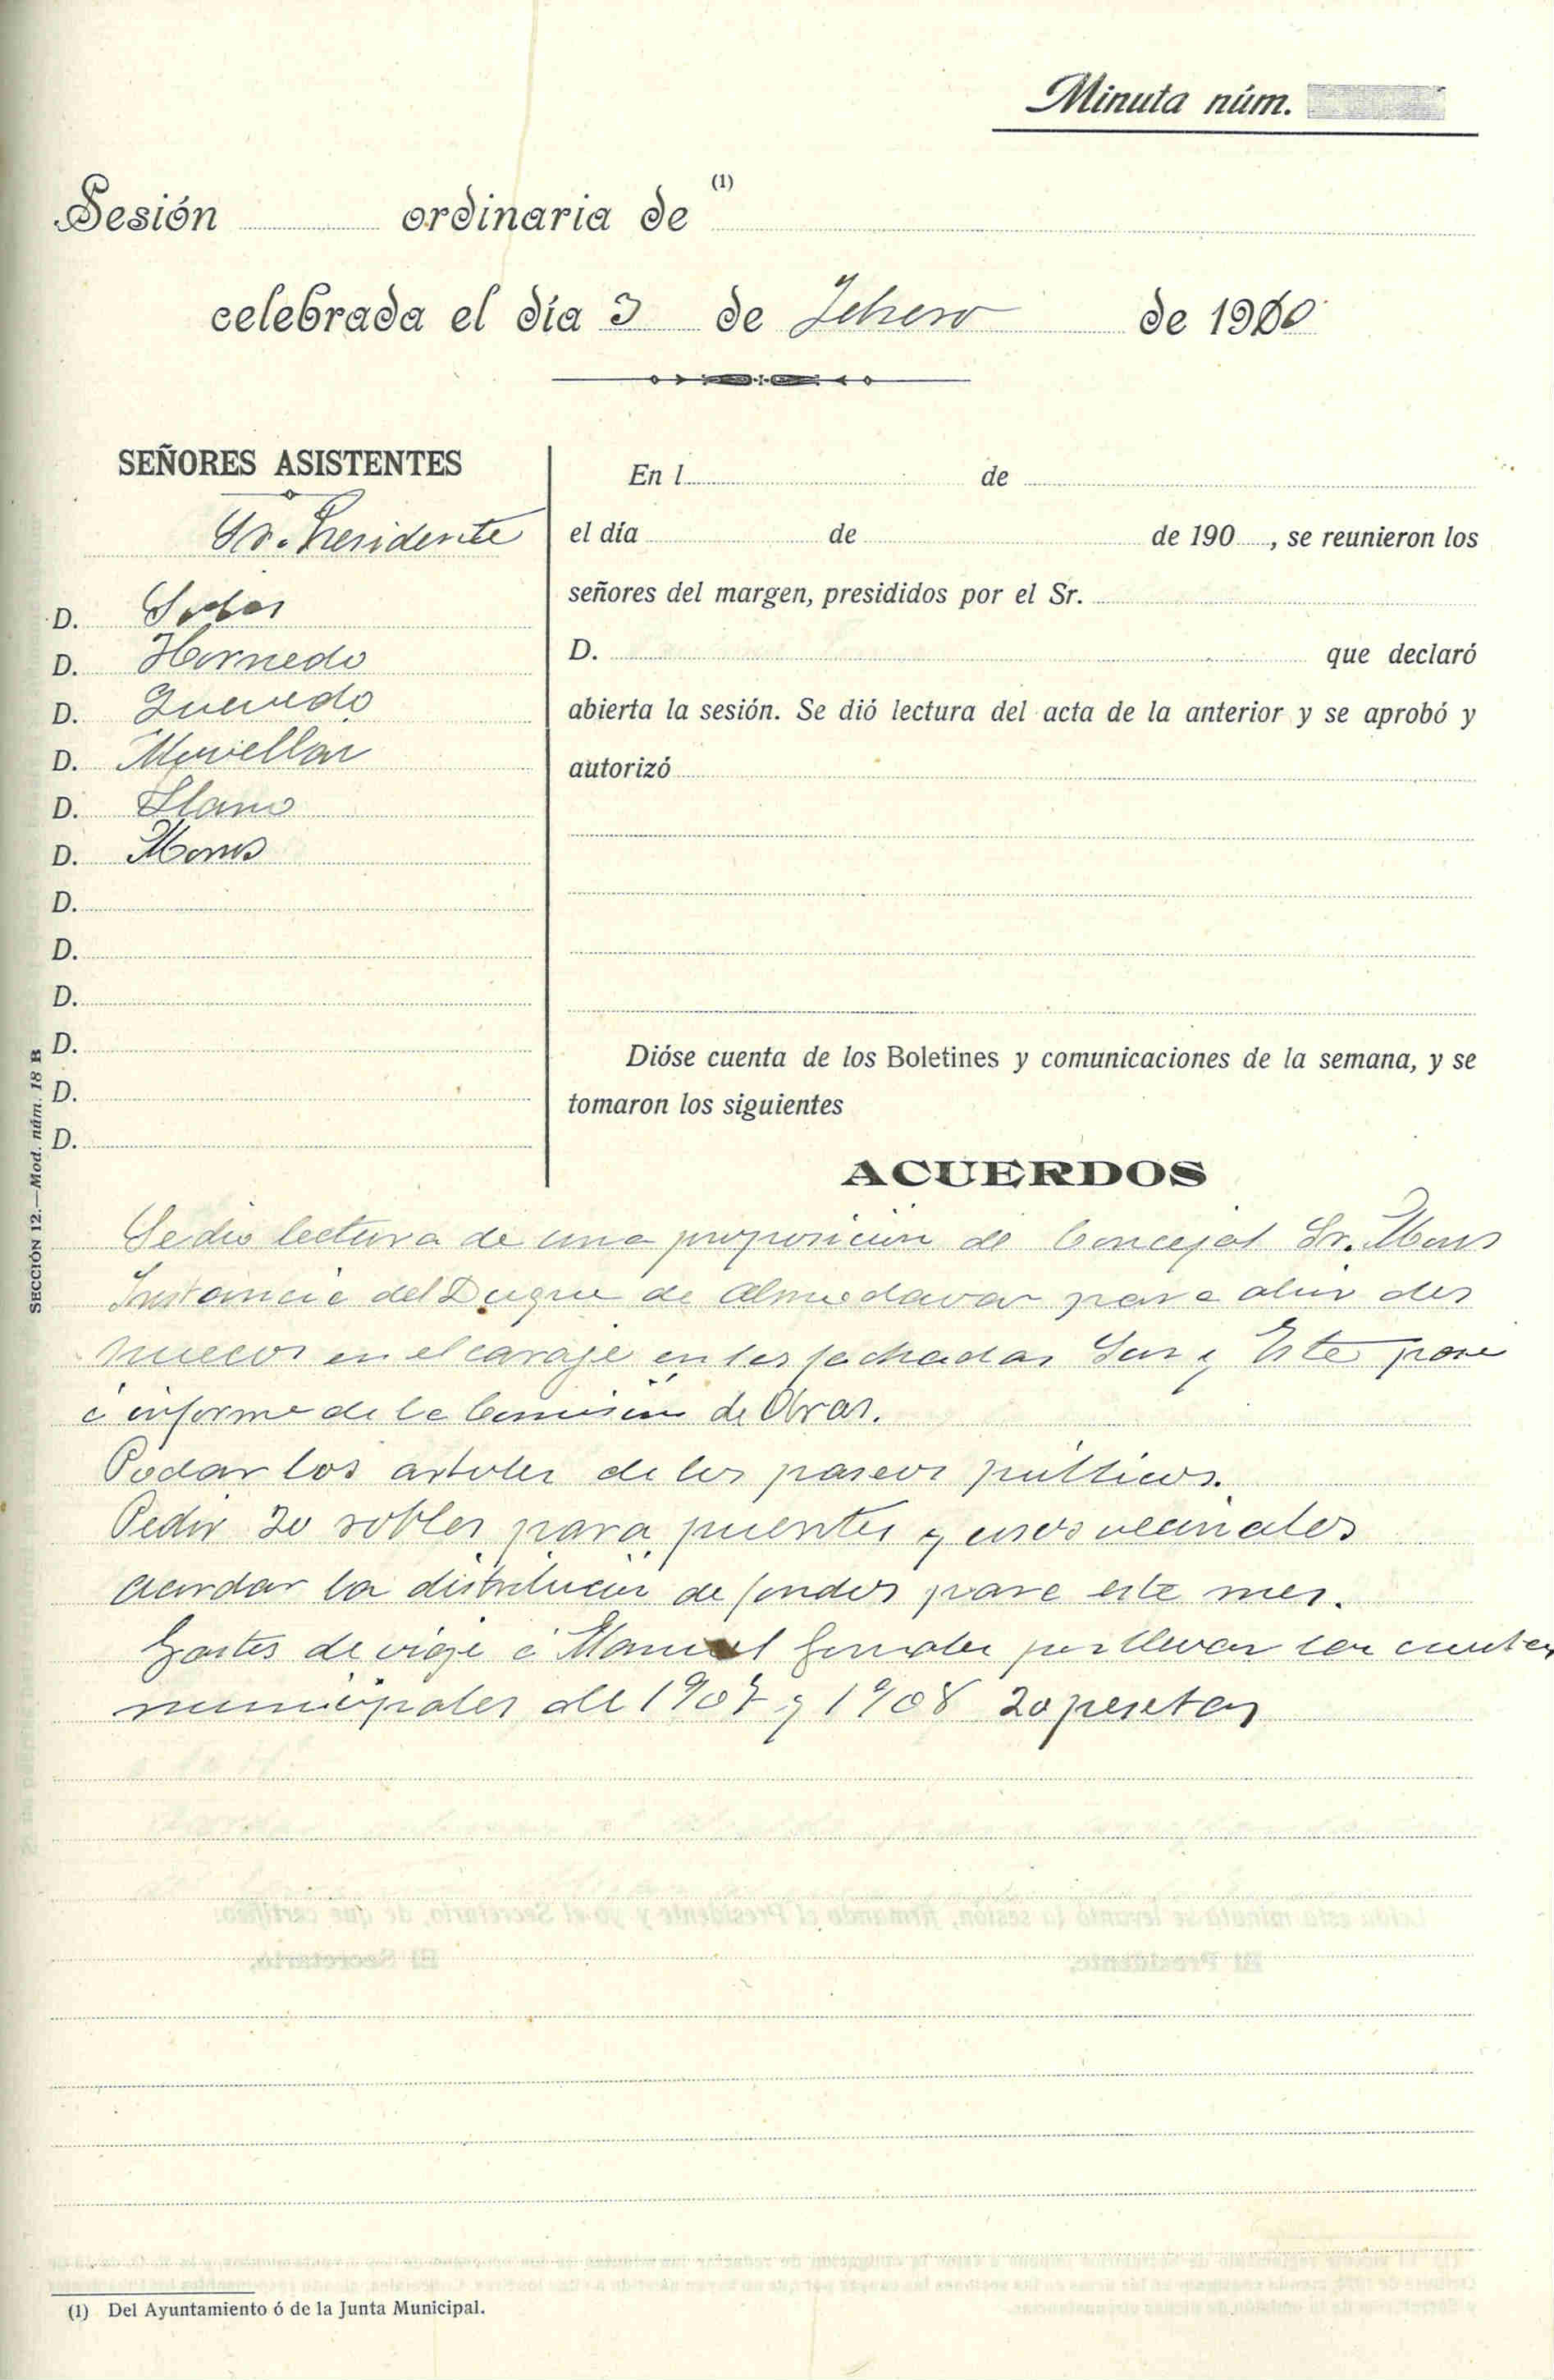 Minuta núm.
Sesión ordinaria de (1)
celebrada el día 3 de Febrero de 1910
SEÑORES ASISTENTES
Sr. Presidente
D. Solar
D. Hornedo
D. Quevedo
D. Movellan
D. Llano
D. Mons
D.
D.
D.
D.
D.
D.
En l de
el día de de 190 , se reunieron los
señores del margen, presididos por el Sr.
D. que declaró
abierta la sesión. Se dió lectura del acta de la anterior y se aprobó y
autorizó
Dióse cuenta de los Boletines y comunicaciones de la semana, y se
tomaron los siguientes
ACUERDOS
Se dio lectura de una proposición del Concejal Sr. Mons
Instancia del Duque de Almodovar para abrir dos
huecos en el garaje en las fachadas Sur y Este pase
á informe de la Comisión de Obras.
Podar los arboles de los paseos públicos.
Pedir 20 robles para puentes y usos vecinales
acordar la distribución de fondos para este mes.
Gastos de viaje á Manuel Gonzalez por llevar las cuentas
municipales del 1907 y 1908 20 pesetas
SECCIÓN 12.—Mod. núm. 18 B
(1) Del Ayuntamiento ó de la Junta Municipal.